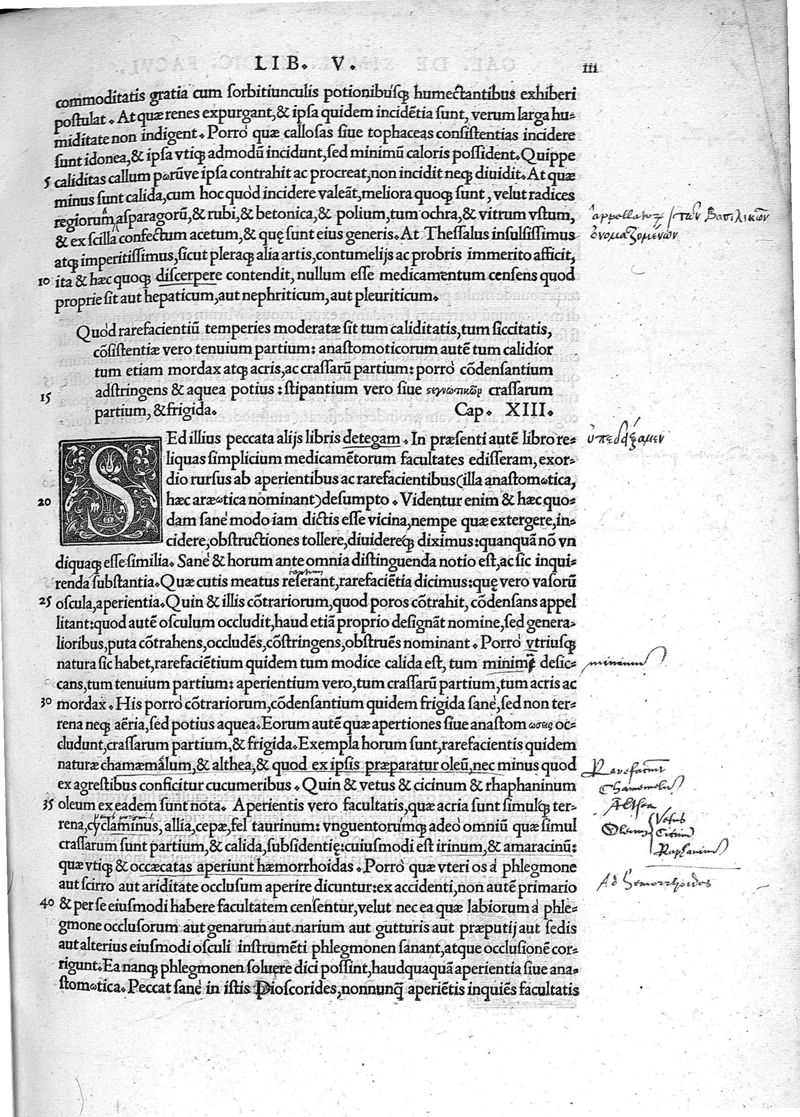 LIB. V.
III
commoditatis gratia cum sorbitiunculis potionibusq; humectantibus exhiberi
postulat. At quæ renes expurgant, & ipsa quidem incidētia sunt, verum larga hu-
miditate non indigent. Porro quæ callosas siue tophaceas consistentias incidere
sunt idonea, & ipsa vtiq; admodū incidunt, sed minimū caloris possident. Quippe
5 caliditas callum pωrūve ipsa contrahit ac procreat, non incidit neq; diuidit. At quæ
minus sunt calida, cum hoc quod incidere valeāt, meliora quoq; sunt, velut radices
regiorum asparagorū, & rubi, & betonica, & polium, tum ochra, & vitrum vstum,
& ex scilla confectum acetum, & quę sunt eius generis. At Thessalus insulsissimus
atq; imperitissimus, sicut pleraq; alia artis, contumelijs ac probris immerito afficit,
10 ita & hæc quoq; discerpere contendit, nullum esse medicamentum censens quod
proprie sit aut hepaticum, aut nephriticum, aut pleuriticum.
Quòd rarefacientiū temperies moderatæ sit tum caliditatis, tum siccitatis,
cōsistentiæ vero tenuium partium: anastomoticorum autē tum calidior
tum etiam mordax atq; acris, ac crassarū partium: porrò cōdensantium
15 adstringens & aquea potius: stipantium vero siue crassarum
partium, & frigida. Cap. XIII.
SEd illius peccata alijs libris detegam. In præsenti autē libro re-
liquas simplicium medicamētorum facultates edisseram, exor-
dio rursus ab aperientibus ac rarefacientibus (illa anastomωtica,
20 hæc aræωtica nominant) desumpto. Videntur enim & hæc quo-
dam sanè modo iam dictis esse vicina, nempe quæ extergere, in-
cidere, obstructiones tollere, diuidereq; diximus: quanquā nō vn
diquaq; esse similia. Sanè & horum ante omnia distinguenda notio est, ac sic inqui-
renda substantia. Quæ cutis meatus reserant, rarefaciētia dicimus: quę vero vasorū
25 oscula, aperientia. Quin & illis cōtrariorum, quod poros cōtrahit, cōdensans appel
litant: quod autē osculum occludit, haud etiā proprio designāt nomine, sed genera-
lioribus, puta cōtrahens, occludēs, cōstringens, obstruēs nominant. Porrò vtriusq;
natura sic habet, rarefaciētium quidem tum modice calida est, tum minime desic-
cans, tum tenuium partium: aperientium vero, tum crassarū partium, tum acris ac
30 mordax. His porrò cōtrariorum, cōdensantium quidem frigida sanè, sed non ter-
rena neq; aëria, sed potius aquea. Eorum autē quæ apertiones siue anastom ωσεις oc-
cludunt, crassarum partium, & frigida. Exempla horum sunt, rarefacientis quidem
naturæ chamæmālum, & althea, & quod ex ipsis præparatur oleū, nec minus quod
ex agrestibus conficitur cucumeribus. Quin & vetus & cicinum & rhaphaninum
35 oleum ex eadem sunt nota. Aperientis vero facultatis, quæ acria sunt simulq; ter-
rena, cyclaminus, allia, cepæ, fel taurinum: vnguentorumq; adeò omniū quæ simul
crassarum sunt partium, & calida, subsidentię: cuiusmodi est irinum, & amaracinū:
quæ vtiq; & occæcatas aperiunt hæmorrhoidas. Porrò quæ vteri os à phlegmone
aut scirro aut ariditate occlusum aperire dicuntur: ex accidenti, non autē primario
40 & per se eiusmodi habere facultatem censentur, velut nec ea quæ labiorum à phle-
gmone occlusorum aut genarum aut narium aut gutturis aut præputij aut sedis
aut alterius eiusmodi osculi instrumēti phlegmonen sanant, atque occlusionē cor-
rigunt. Ea nanq; phlegmonen soluere dici possint, haudquaquā aperientia siue ana-
stomωtica. Peccat sanè in istis Dioscorides, nonnunq̄ aperiētis inquiēs facultatis
τῶν βασιλικῶν
ὀνομαζομένων
minimum
Rarefaciunt
Chamemelum
Althea
Oleum Vetus
Cicinum
Raphaninum
Ad hemorrhoides